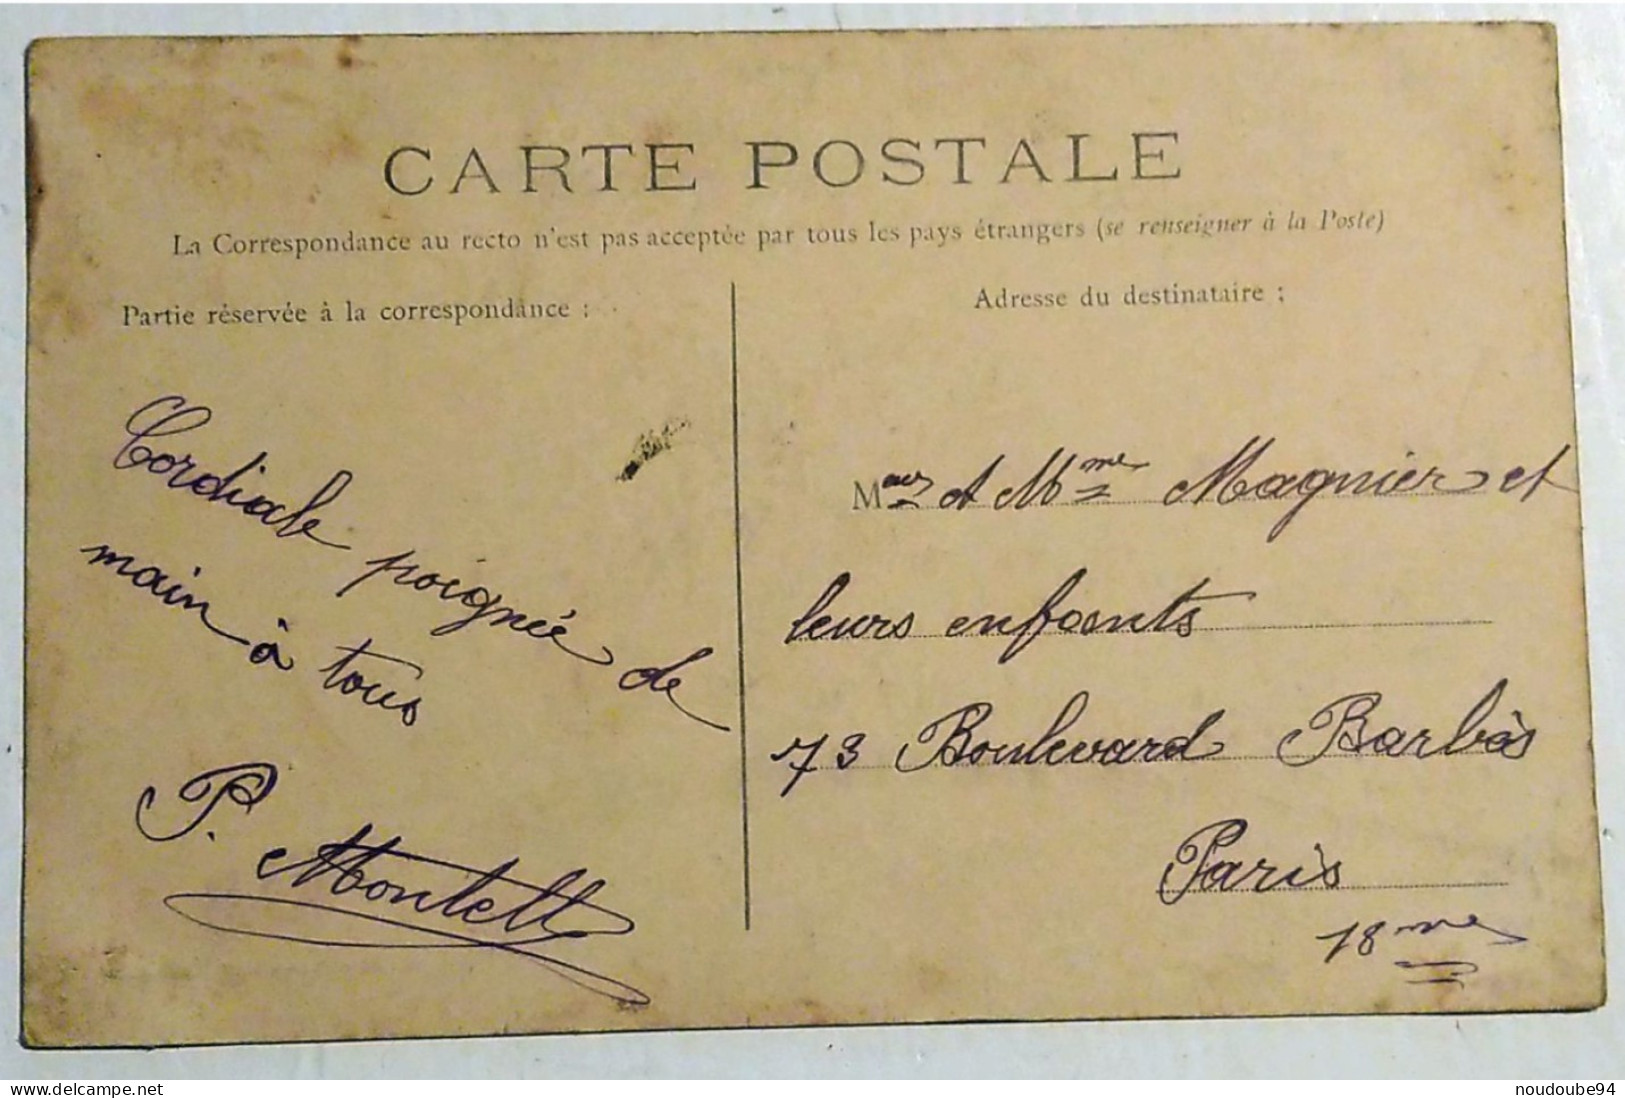 CARTE POSTALE
La Correspondance au recto n'est pas acceptée par tous les pays étrangers (se renseigner à la Poste)
Partie réservée à la correspondance :
Cordiale poignée de
main à tous
P. Montell
Adresse du destinataire :
Mr et Mme Magnier et
leurs enfants
73 Boulevard Barbès
Paris
18me
www.delcampe.net
noudoube94